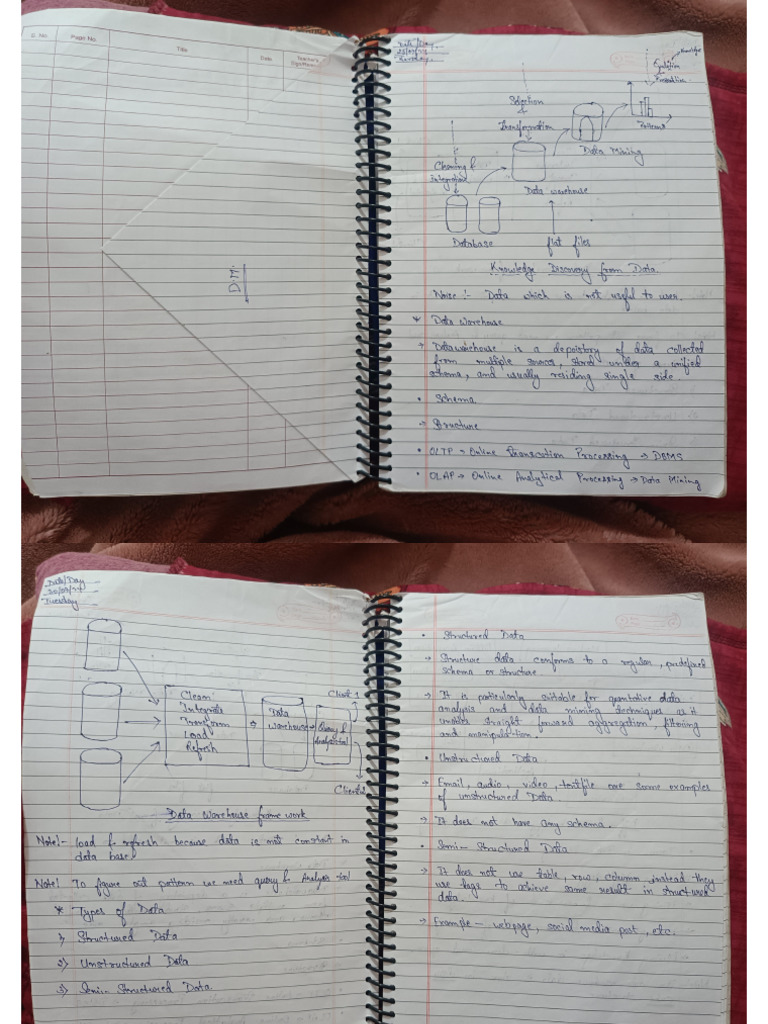 S. No.
Page No.
Title
Date
Teacher's
Sign/Remarks
D.M.
Date/Day
Knowledge
Evaluation
Presentation
Selection
&
Transformation
Patterns
Data Mining
Cleaning &
integration
Data warehouse
Database
flat files
Knowledge Discovery from Data
Noise :- Data which is not useful to user.
* Data warehouse
→ Datawarehouse is a depoistory of data collected
from multiple sources, stored under a unified
schema, and usually residing single side.
• Schema
→ Structure
• OLTP → Online Transcation Processing → DBMS
• OLAP → Online Analytical Processing → Data Mining
Date/Day
Tuesday
Clean
Integrate
Transform
Load
Refresh
Data
warehouse
Query &
Analytical
Client 1
Client 2
Data Warehouse frame work
Note!- load & refresh because data is not constant in
data base
Note! To figure out pattern we need query & Analysis tool
* Types of Data
1) Structured Data
2) Unstructured Data
3) Semi- Structured Data.
• Structured Data
→ Structure data conforms to a regular, predefined
schema or structure.
→ It is particularly suitable for quantative data
analysis and data mining techniques as it
straight forward aggregation, filtering
and manipulation.
• Unstructured Data
→ Email, audio, video, textfile are some examples
of unstructured Data.
→ It does not have any schema.
• Semi- Structured Data
→ It does not use table, row, column instead they
use tags to achieve same result in structured
data.
→ Example - webpage, social media post, etc.